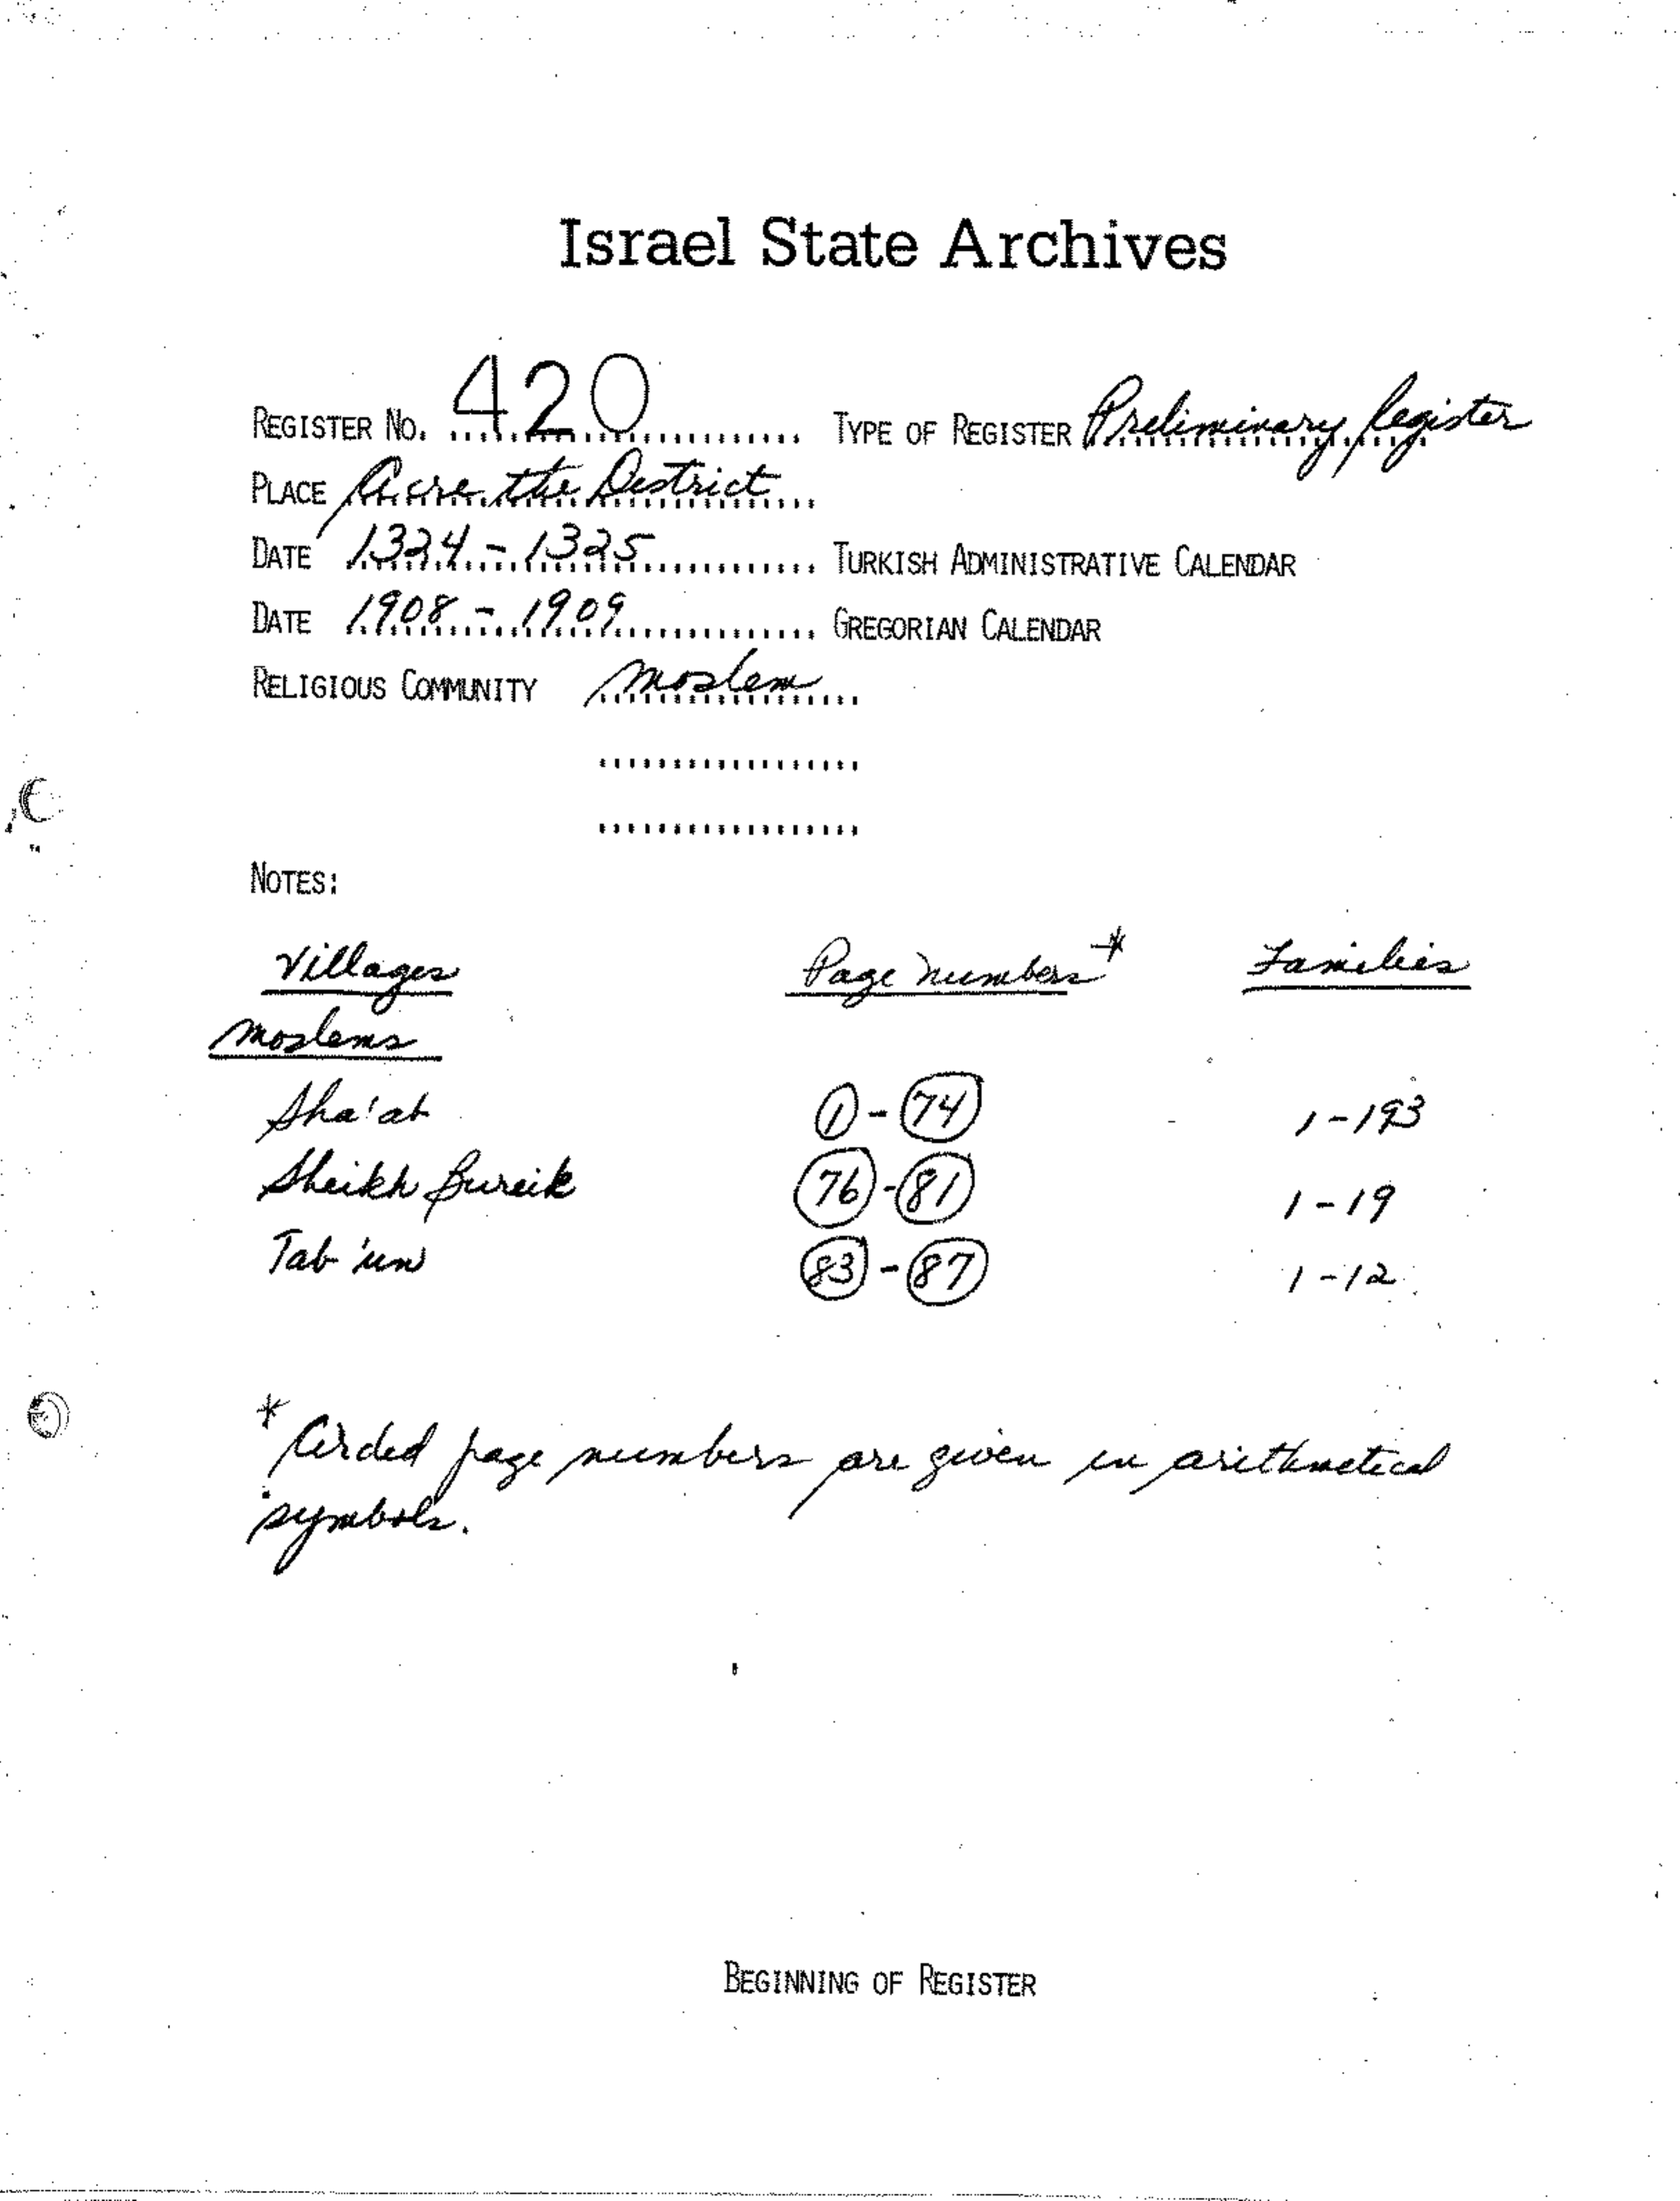 Israel State Archives
REGISTER NO. 420 TYPE OF REGISTER Preliminary Register
PLACE Acre, the District
DATE 1324 - 1325 TURKISH ADMINISTRATIVE CALENDAR
DATE 1908 - 1909 GREGORIAN CALENDAR
RELIGIOUS COMMUNITY Moslem
NOTES:
Villages Page Numbers * Families
Moslems
Sha'ab 1 - 74 1 - 193
Sheikh Bureik 76 - 81 1 - 19
Tab'un 83 - 87 1 - 12
* Circled page numbers are given in arithmetical
symbols.
BEGINNING OF REGISTER